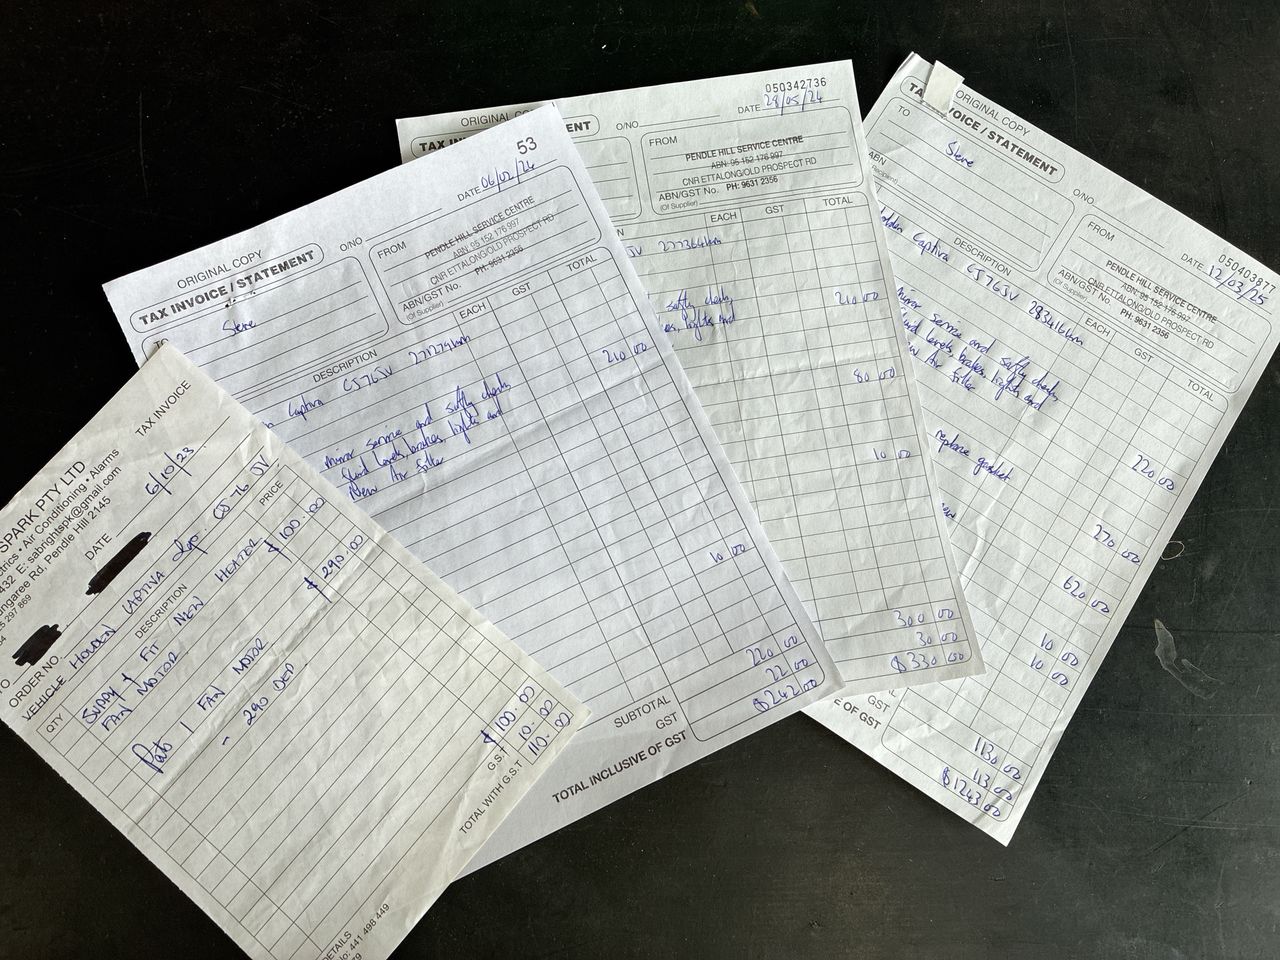 SPARK PTY LTD
TAX INVOICE
trics • Air Conditioning • Alarms
432 E: sabrightspk@gmail.com
ngaree Rd, Pendle Hill 2145
297 869
DATE 6/10/23
TO
ORDER NO.
VEHICLE HOLDEN CAPTIVA CJ 76 JV
QTY DESCRIPTION PRICE
SUPPLY & FIT NEW HEATER $100.00
FAN MOTOR
Parts 1 FAN MOTOR $290.00
- 290 DEP
$100.00
G.S.T 10.00
TOTAL WITH G.S.T 110.00
DETAILS
No: 441 496 449
53
ORIGINAL COPY
TAX INVOICE / STATEMENT
O/NO
DATE 06/02/24
TO Steve
FROM PENDLE HILL SERVICE CENTRE
ABN: 95 152 176 997
CNR ETTALONG/OLD PROSPECT RD
ABN/GST No. PH: 9631 2356
(Of Supplier)
DESCRIPTION EACH GST TOTAL
Captiva CJ76JV
minor service and safty check, 210 00
fluid levels, brakes, lights and
New Air filter
10 00
SUBTOTAL 220 00
GST 22 00
TOTAL INCLUSIVE OF GST $242 00
050342736
ORIGINAL COPY
TAX IN
ENT
O/NO
DATE 29/05/24
FROM PENDLE HILL SERVICE CENTRE
ABN: 95 152 176 997
CNR ETTALONG/OLD PROSPECT RD
ABN/GST No. PH: 9631 2356
(Of Supplier)
N EACH GST TOTAL
JV 277364km
safty check, 210 00
es, lights and
80 00
10 00
300 00
30 00
$330 00
ORIGINAL COPY
TA
VOICE / STATEMENT
O/NO
050403877
DATE 12/03/25
TO Steve
ABN
Recipient)
FROM PENDLE HILL SERVICE CENTRE
ABN: 95 152 176 997
CNR ETTALONG/OLD PROSPECT RD
ABN/GST No. PH: 9631 2356
(Of Supplier)
DESCRIPTION EACH GST TOTAL
olden Captiva CJ76JV 283416km
minor service and safty check,
fluid levels, brakes, lights and
New Air filter
220 00
replace gasket
270 00
620 00
10 00
10 00
1130 00
113 00
E OF GST $1243 00